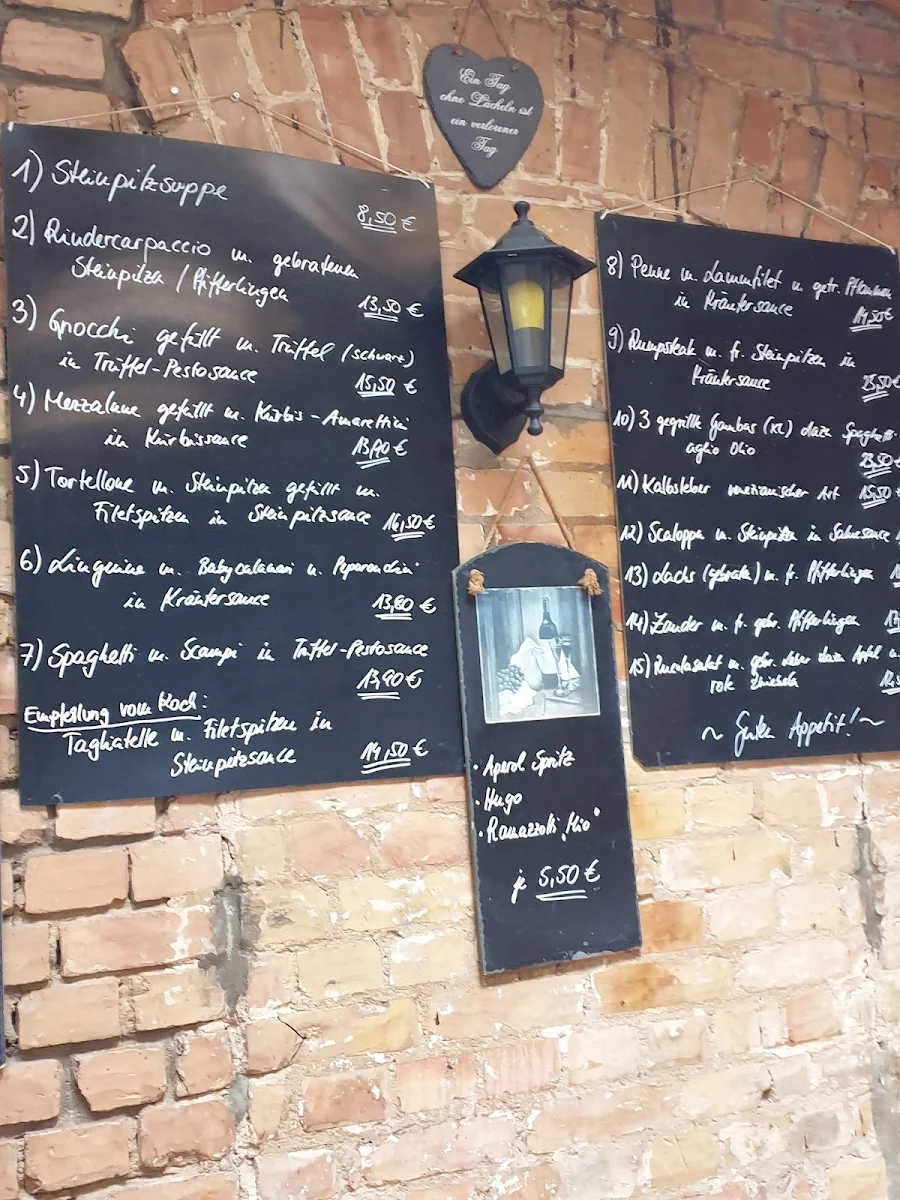 Ein Tag
ohne Lächeln ist
ein verlorener
Tag
1) Steinpilzsuppe
8,50 €
2) Rindercarpaccio m. gebratenen
Steinpilzen / Pfifferlingen
13,50 €
3) Gnocchi gefüllt m. Trüffel (schwarz)
in Trüffel-Pestosauce
15,50 €
4) Mezzalune gefüllt m. Kürbis-Amarettini
in Kürbissauce
13,90 €
5) Tortellone m. Steinpilzen gefüllt m.
Filetspitzen in Steinpilzsauce 16,50 €
6) Linguine m. Babycalamari u.
in Kräutersauce
13,80 €
7) Spaghetti m. Scampi in Trüffel-Pestosauce
13,90 €
Empfehlung vom Koch:
Tagliatelle m. Filetspitzen in
Steinpilzsauce
14,50 €
8) Penne m. Lammfilet u. getr. Pflaumen
in Kräutersauce
14,50 €
9) Rumpsteak m. fr. Steinpilzen in
Kräutersauce
23,50 €
10) 3 gegrillte Gambas (XL) dazu Spaghetti
aglio Olio
23,50 €
11) Kalbsleber venezianischer Art 15,50 €
12) Scaloppa m. Steinpilzen in Sahnesauce
13) Lachs (gebraten) m. fr. Pfifferlingen
14) Zander m. fr. gebr. Pfifferlingen
15) Rucolasalat m. gebr. Leber dazu Apfel u.
rote Zwiebeln
~ Guten Appetit! ~
• Aperol Spritz
• Hugo
• Ramazzotti „Mio"
je 5,50 €